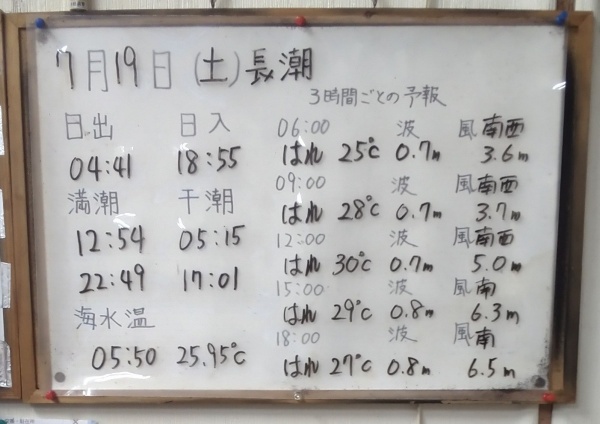 7月19日 (土) 長潮
日出 日入
04:41 18:55
満潮 干潮
12:54 05:15
22:49 17:01
海水温
05:50 25.95℃
3時間ごとの予報
06:00 波 風 南西
はれ 25℃ 0.7m 3.6m
09:00 波 風 南西
はれ 28℃ 0.7m 3.7m
12:00 波 風 南西
はれ 30℃ 0.7m 5.0m
15:00 波 風 南
はれ 29℃ 0.8m 6.3m
18:00 波 風 南
はれ 27℃ 0.8m 6.5m